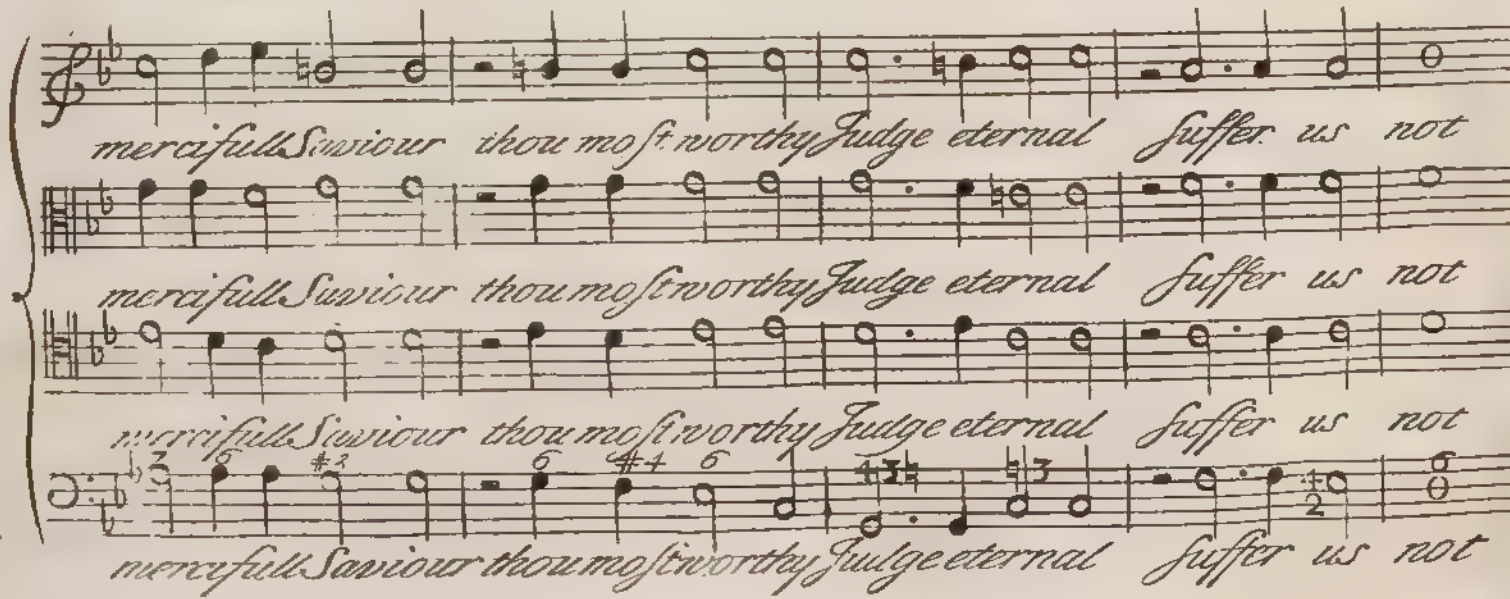 mercifull Saviour thou moſt worthy Judge eternal ſuffer us not
mercifull Saviour thou moſt worthy Judge eternal ſuffer us not
mercifull Saviour thou moſt worthy Judge eternal ſuffer us not
6 #4 6 4 3 ♮ ♮ 3 4 6
2
mercifull Saviour thou moſt worthy Judge eternal ſuffer us not